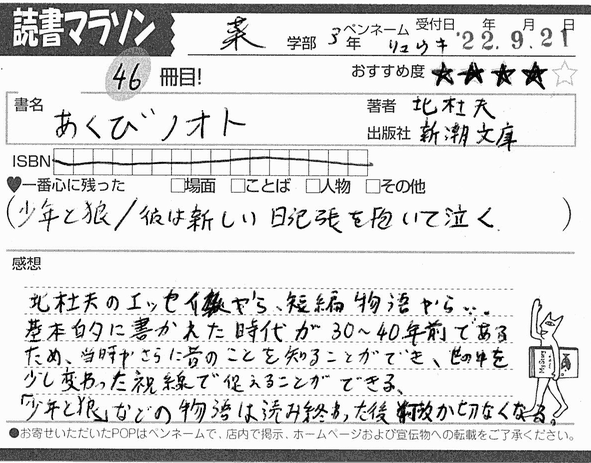 読書マラソン
薬 学部 3年 ペンネーム リュウキ 受付日 年 月 日 '22.9.21
46冊目! おすすめ度 ★★★★☆
書名 あくびノオト
著者 北杜夫
出版社 新潮文庫
ISBN
♥一番心に残った □場面 □ことば □人物 □その他
(少年と狼/彼は新しい日記帳を抱いて泣く )
感想
北杜夫のエッセイ集から、短編物語から…
基本的に書かれた時代が30〜40年前である
ため、当時やさらに昔のことを知ることができ、世の中を
少し変わった視線で捉えることができる。
「少年と狼」などの物語は読み終わった後何故か切なくなる。
●お寄せいただいたPOPはペンネームで、店内で掲示、ホームページおよび宣伝物への転載をご了承ください。